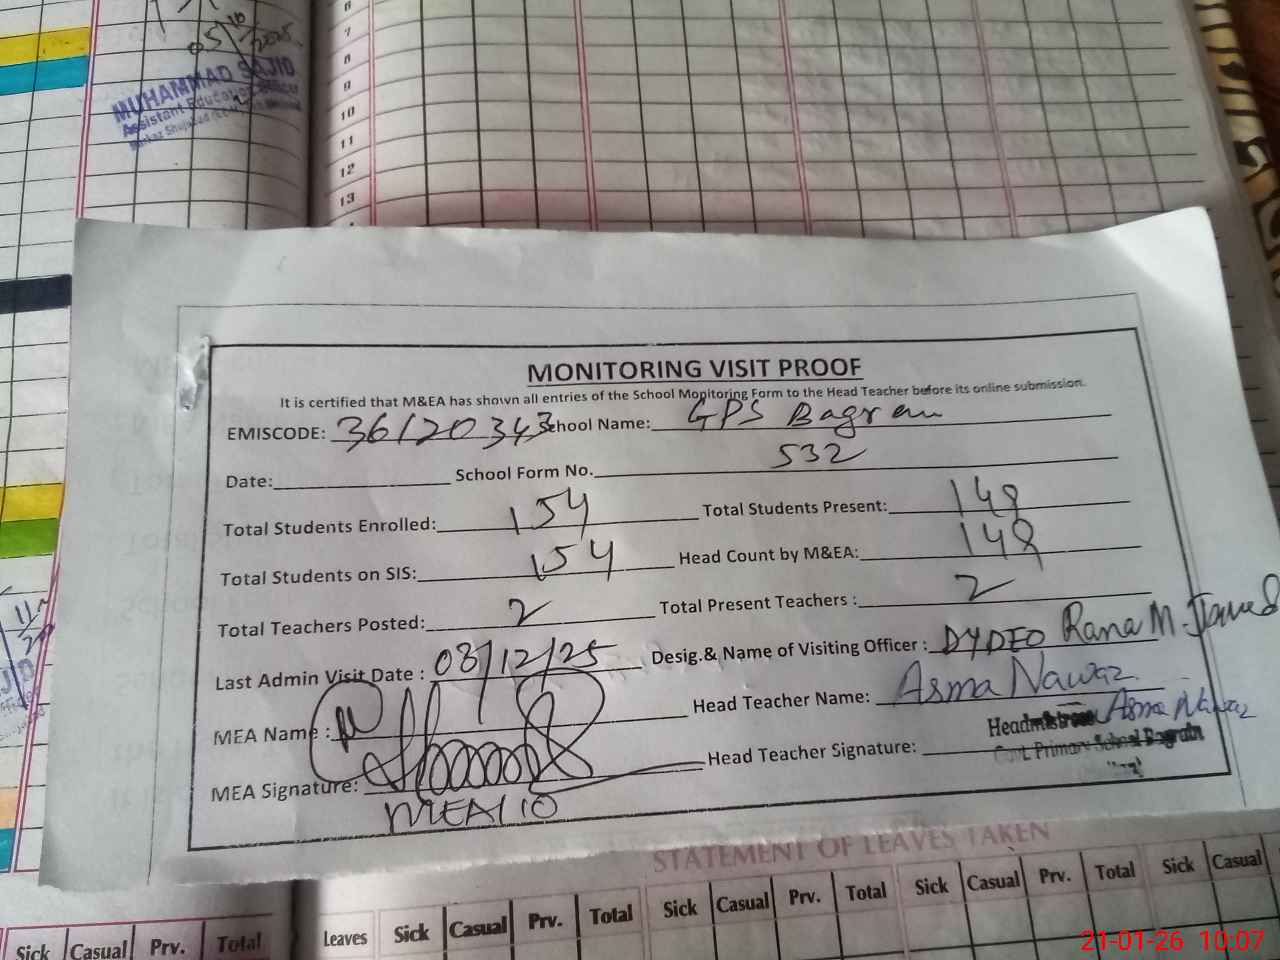 6
7
8
9
10
11
12
13
05/10/2025
MUHAMMAD SAJID
Assistant Education Officer
MONITORING VISIT PROOF
It is certified that M&EA has shown all entries of the School Monitoring Form to the Head Teacher before its online submission.
EMISCODE: 36120343 School Name: GPS Bagren
Date: School Form No. 532
Total Students Enrolled: 154 Total Students Present: 148
Total Students on SIS: 154 Head Count by M&EA: 148
Total Teachers Posted: 2 Total Present Teachers : 2
Last Admin Visit Date : 08/12/25 Desig.& Name of Visiting Officer : DYDEO Rana M.
MEA Name : Head Teacher Name: Asma Nawaz
MEA Signature: Head Teacher Signature: Asma Nawaz
Headmistress
Govt. Primary School Bagrain
MEA 10
STATEMENT OF LEAVES TAKEN
Sick Casual Prv. Total Leaves Sick Casual Prv. Total Sick Casual Prv. Total Sick Casual Prv. Total Sick Casual
21-01-26 10:07